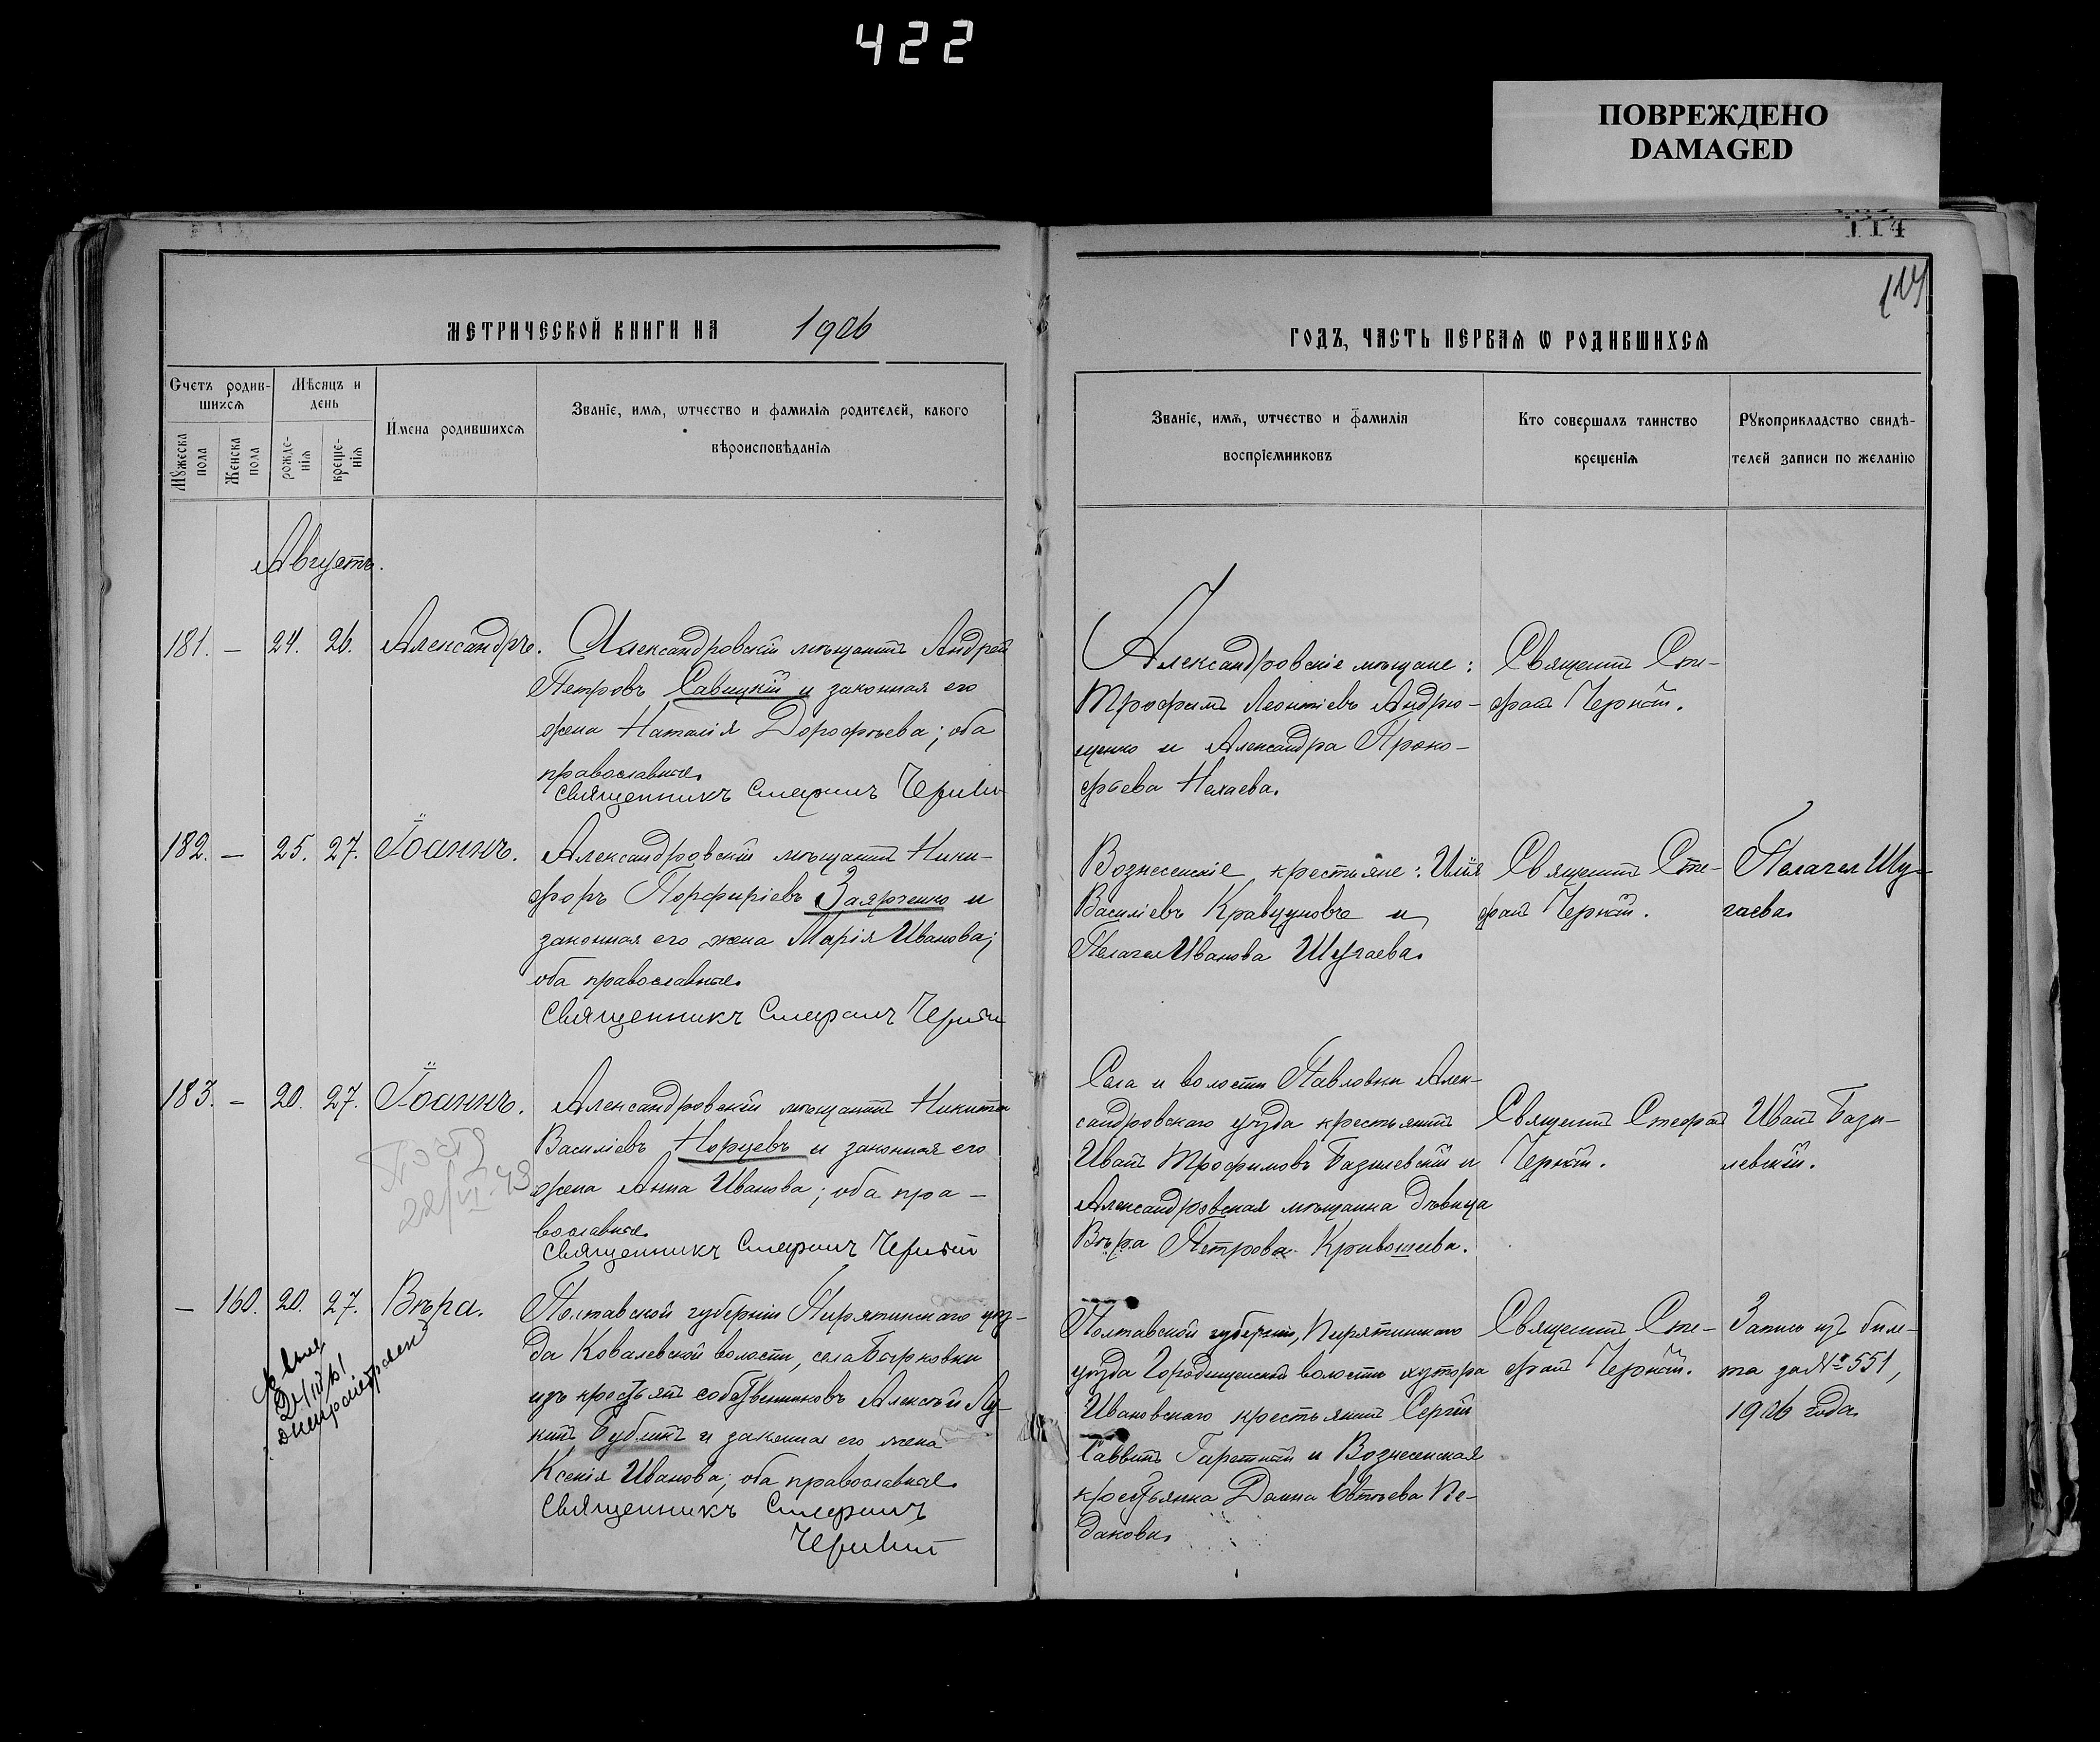 422
ПОВРЕЖДЕНО
DAMAGED
114
114
МЕТРИЧЕСКОЙ КНИГИ НА 1906
ГОДЪ, ЧАСТЬ ПЕРВАѦ Ѡ РОДИВШИХСѦ
Счетъ родив-
шихсѧ
Мѣсяцъ и
день
Мꙋжеска
пола
Женска
пола
рожде-
нїѧ
креще-
нїѧ
Имена родившихсѧ
Званїе, имѧ, ѡтчество и фамилїѧ родителей, какого
вѣроисповѣданїѧ
Званїе, имѧ, ѡтчество и фамилїѧ
воспрїемниковъ
Кто совершалъ таинство
крещенїѧ
Рꙋкоприкладство свидѣ-
телей записи по желанїю
Августъ.
181. — 24. 26. Александръ.
Александровскій мѣщанинъ Андрей
Петровъ Савицкій и законная его
жена Наталія Дорофѣева; оба
православные.
Священникъ Стефанъ
Александровскіе мѣщане:
Трофимъ Леонтіевъ Андрю-
щенко и Александра Проко-
фьева Нехаева.
Священникъ Сте-
фанъ
182. — 25. 27. Іоаннъ.
Александровскій мѣщанинъ Ники-
форъ Порфиріевъ Заярченко и
законная его жена Марія Иванова;
оба православные.
Священникъ Стефанъ
Вознесенскіе крестьяне: Илія
Василіевъ Кравцуновъ и
Пелагея Иванова Шугаева.
Священникъ Сте-
фанъ
Пелагея Шу-
гаева.
183. — 20. 27. Іоаннъ.
22/VI-43
Александровскій мѣщанинъ Никита
Василіевъ Норцевъ и законная его
жена Анна Иванова; оба пра-
вославные.
Священникъ Стефанъ
Села и волости Павловки Алек-
сандровскаго уѣзда крестьянинъ
Иванъ Трофимовъ Базилевскій и
Александровская мѣщанка дѣвица
Вѣра Петрова Кривошеева.
Священникъ Стефанъ
Иванъ Бази-
левскій.
— 160. 20. 27. Вѣра.
Полтавской губерніи Пирятинскаго уѣз-
да Ковалевской волости, села
изъ крестьянъ собственниковъ Алексѣй Лу-
кинъ Бубликъ и законная его жена
Ксенія Иванова; оба православные.
Священникъ Стефанъ
Полтавской губерніи, Пирятинскаго
уѣзда Городищенской волости хутора
Ивановскаго крестьянинъ Сергій
Саввинъ и Вознесенская
крестьянка Домна Евтѣева Пе-
данова.
Священникъ Сте-
фанъ
Запись изъ биле-
та за № 551,
1906 года.